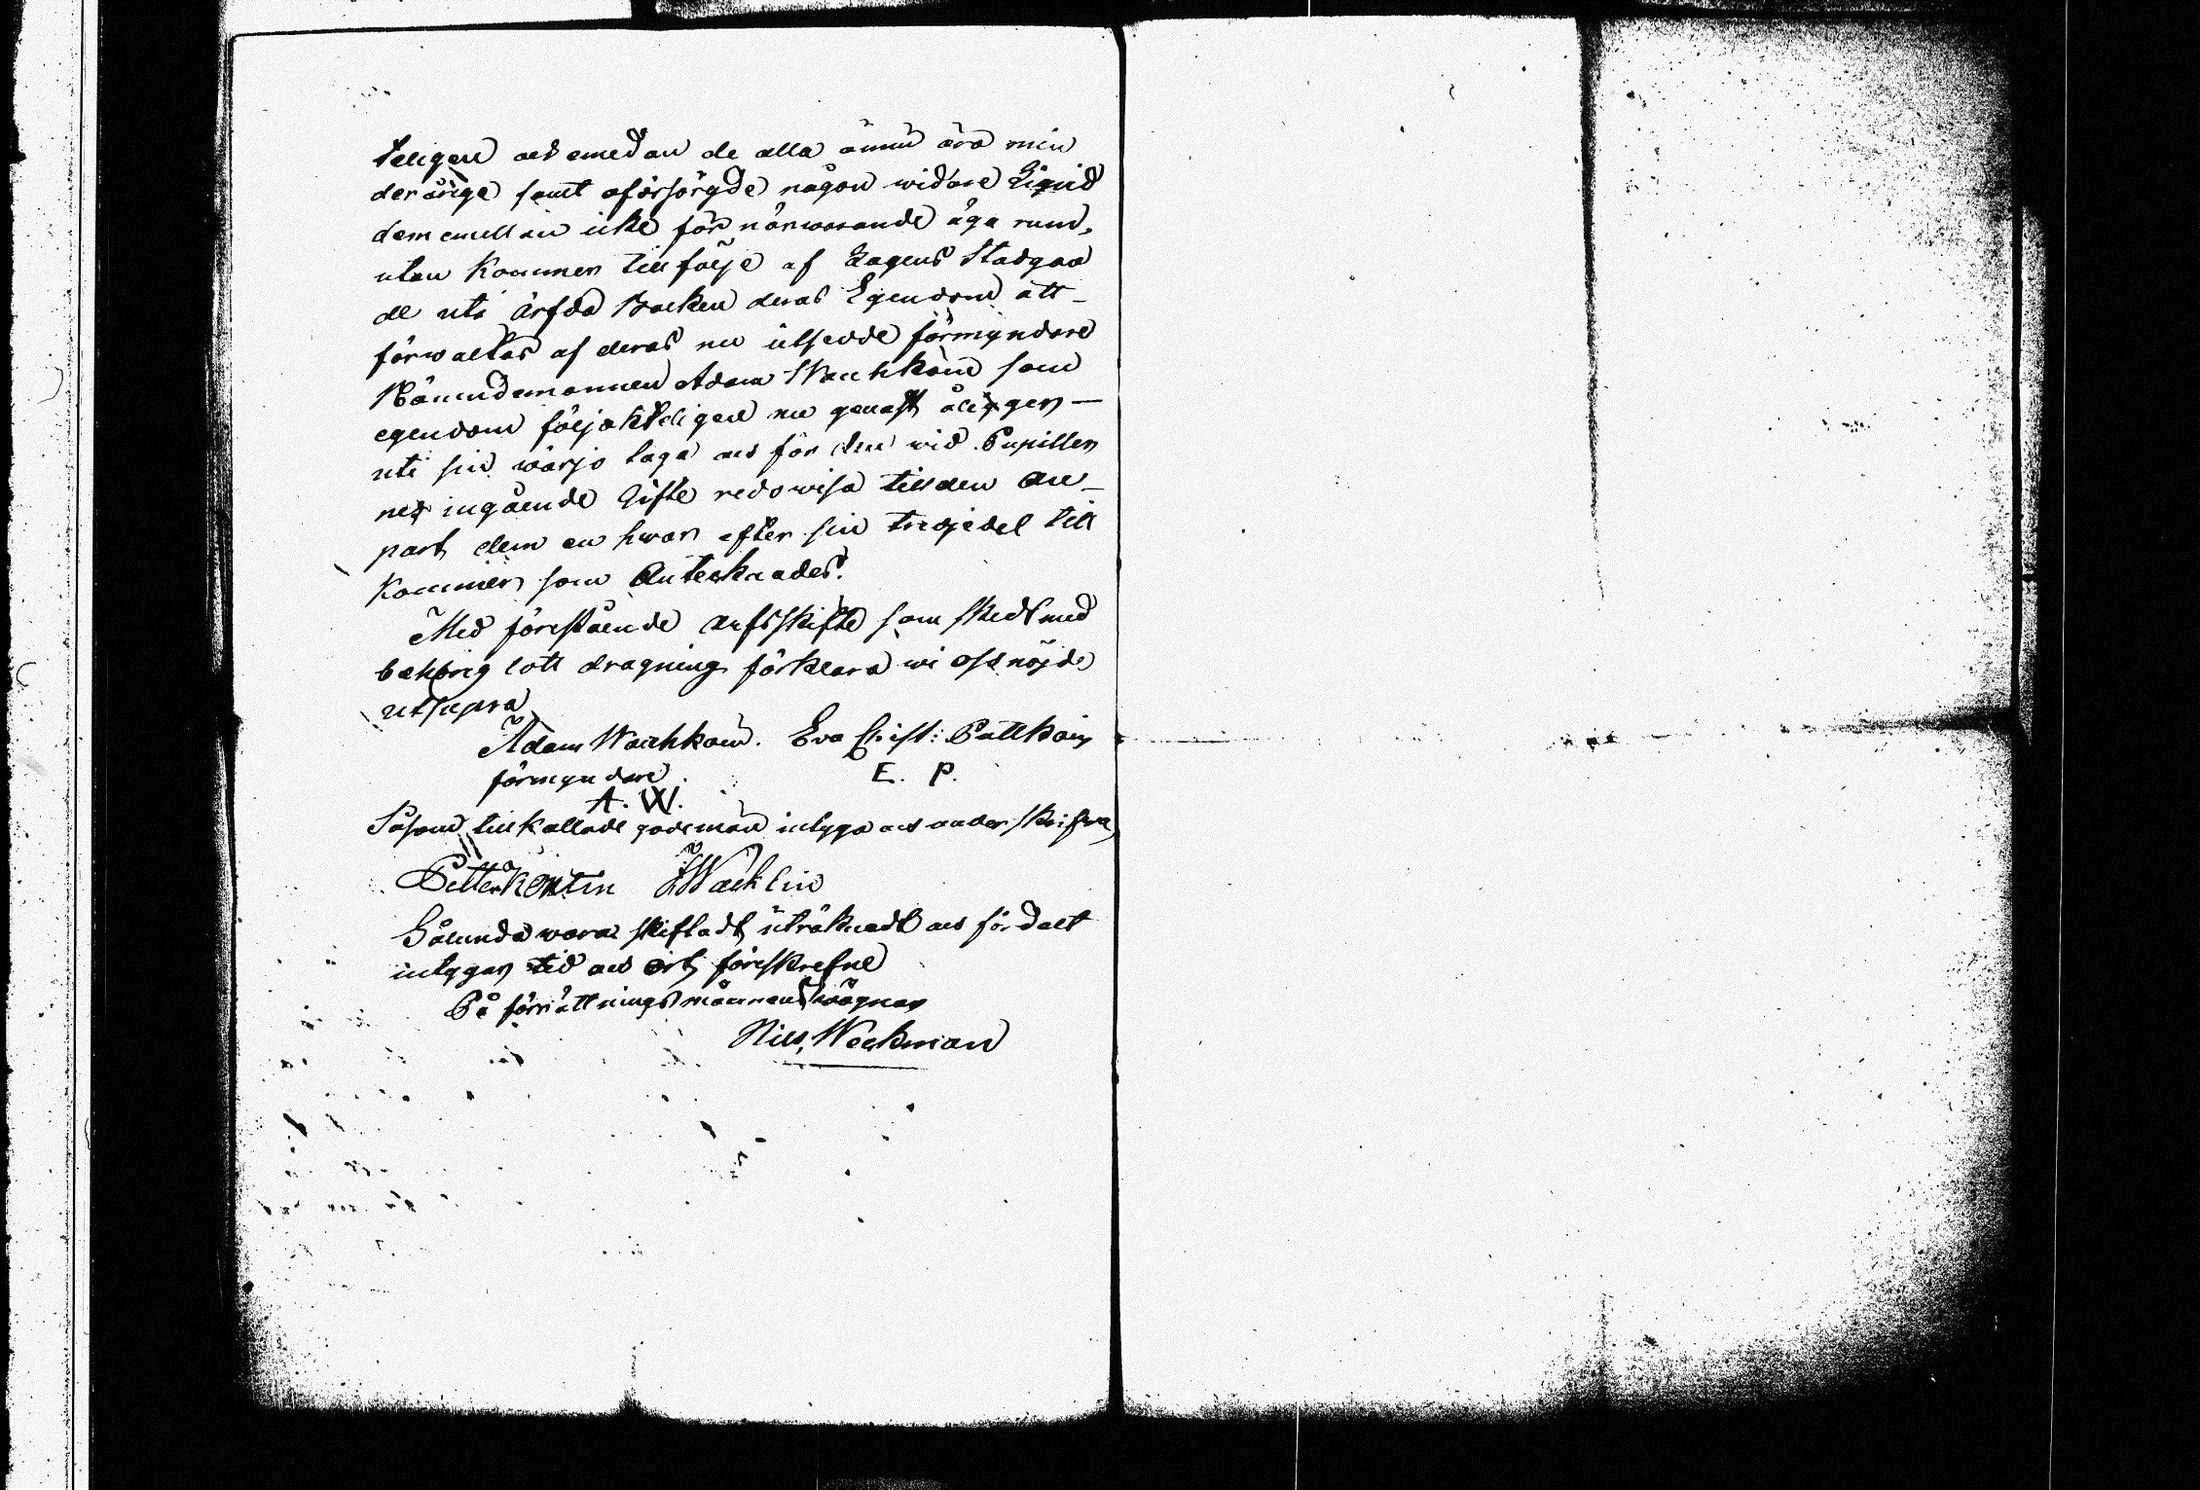 teligen och emedan de alla ännu äro min
deråriga samt oförsörgde någon widare Liqvid
dem emellan icke för närwarande äga rum,
utan kommer till följe af Lagens Stadgan
de uti Ärfda Balken deras Egendom att
förwaltas af deras nu utsedde förmyndare
Nämndemannen Adam Wachkoin som
egendom följakteligen nu genast åligger
uti sin wärjo taga och för den wid Pupillen
ner ingående Gifte redowisa till den An-
part dem en hwar efter sin tredjedel till
kommer som Antecknades.
Med förestående arfsskifte som skedt med
behörig lott dragning förklara wi oss nöjde
ut supra
Adam Wachkoin. Eva Christ: Pattkoin
förmyndare E. P.
A. W.
Såsom tillkallade gode män intyga och underskrifva
Petter Kontin J Wacklin
Sålunda wara skiftadt, uträknadt och fördelt
intygar tid och ort föreskrefne
På förrättningsmännens wägnar
Nils Weckman